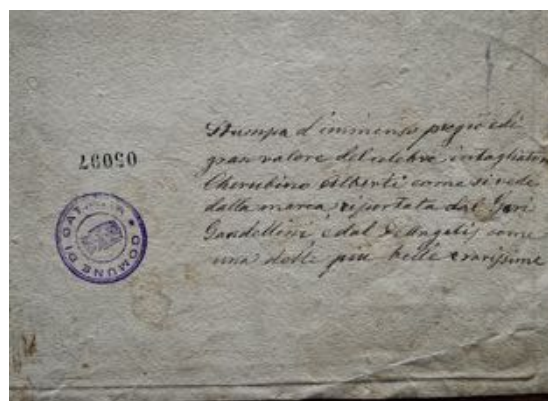 Stampa d'immenso pregio e di
gran valore del celebre intagliatore
Cherubino Alberti come si vede
dalla marca, riportata dal Gori
Gandellini e dal DeAngelis come
una delle piu belle e rarissime
05097
COMUNE